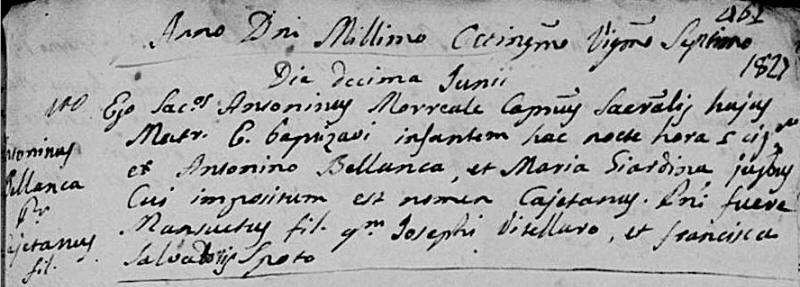 461
Anno Dni Millimo Octingmo Vigmo Septimo
1827
Die decima Junii
Ego Sacos Antoninus Morreale Capnus Sacralis hujus
Matr. E. baptizavi infantem hac nocte hora 5
Antoninus
ex Antonino Bellanca, et Maria Giardina jugbus
Bellanca
Cui impositum est nomen Cajetanus. Pni fuere
Pr
Mansuetus fil. qm Josephi Vitellaro, et Francisca
Cajetanus
fil.
Salvatoris Spoto